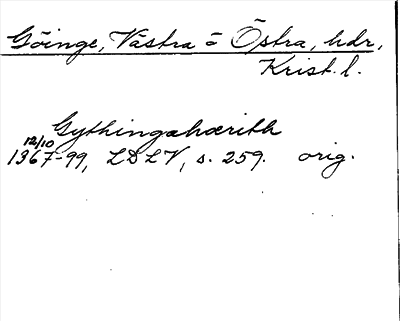 Göinge, Västra o Östra, hdr,
Krist. l.
Gythingæhærith
12/10
1367-99, LDLV, s. 259. orig.